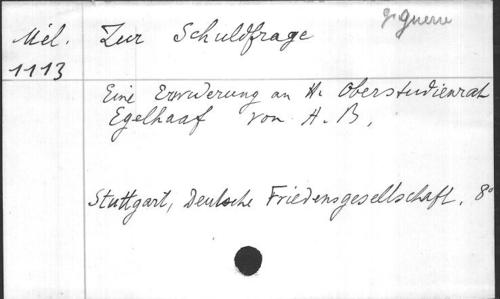 Mél. Zur Schuldfrage guerre
1113
Eine Erwiderung an H. Oberstudienrat
Egelhaaf von A. B.
Stuttgart, Deutsche Friedensgesellschaft. 8°